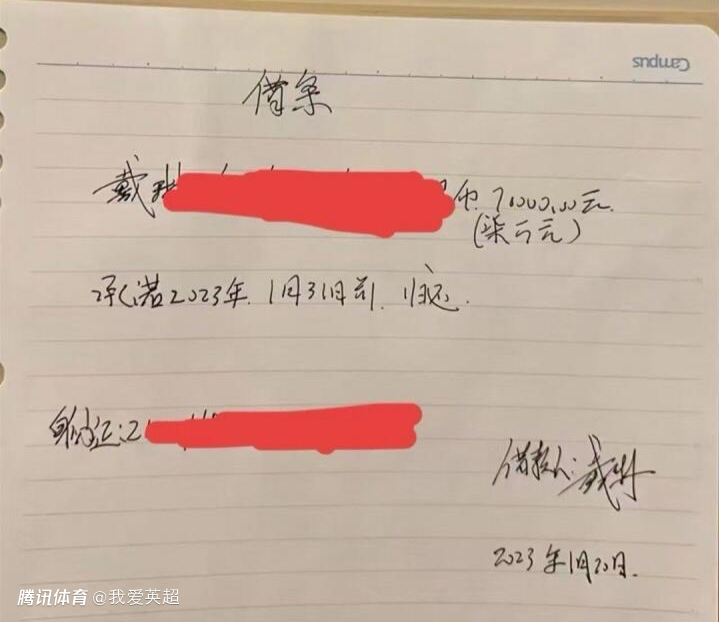 Campus
借条
戴琳 币 70000.00元.
(柒万元)
承诺2023年 1月31日前 归还.
身份证:2
借款人:戴琳
2023年1月20日.
腾讯体育 @我爱英超